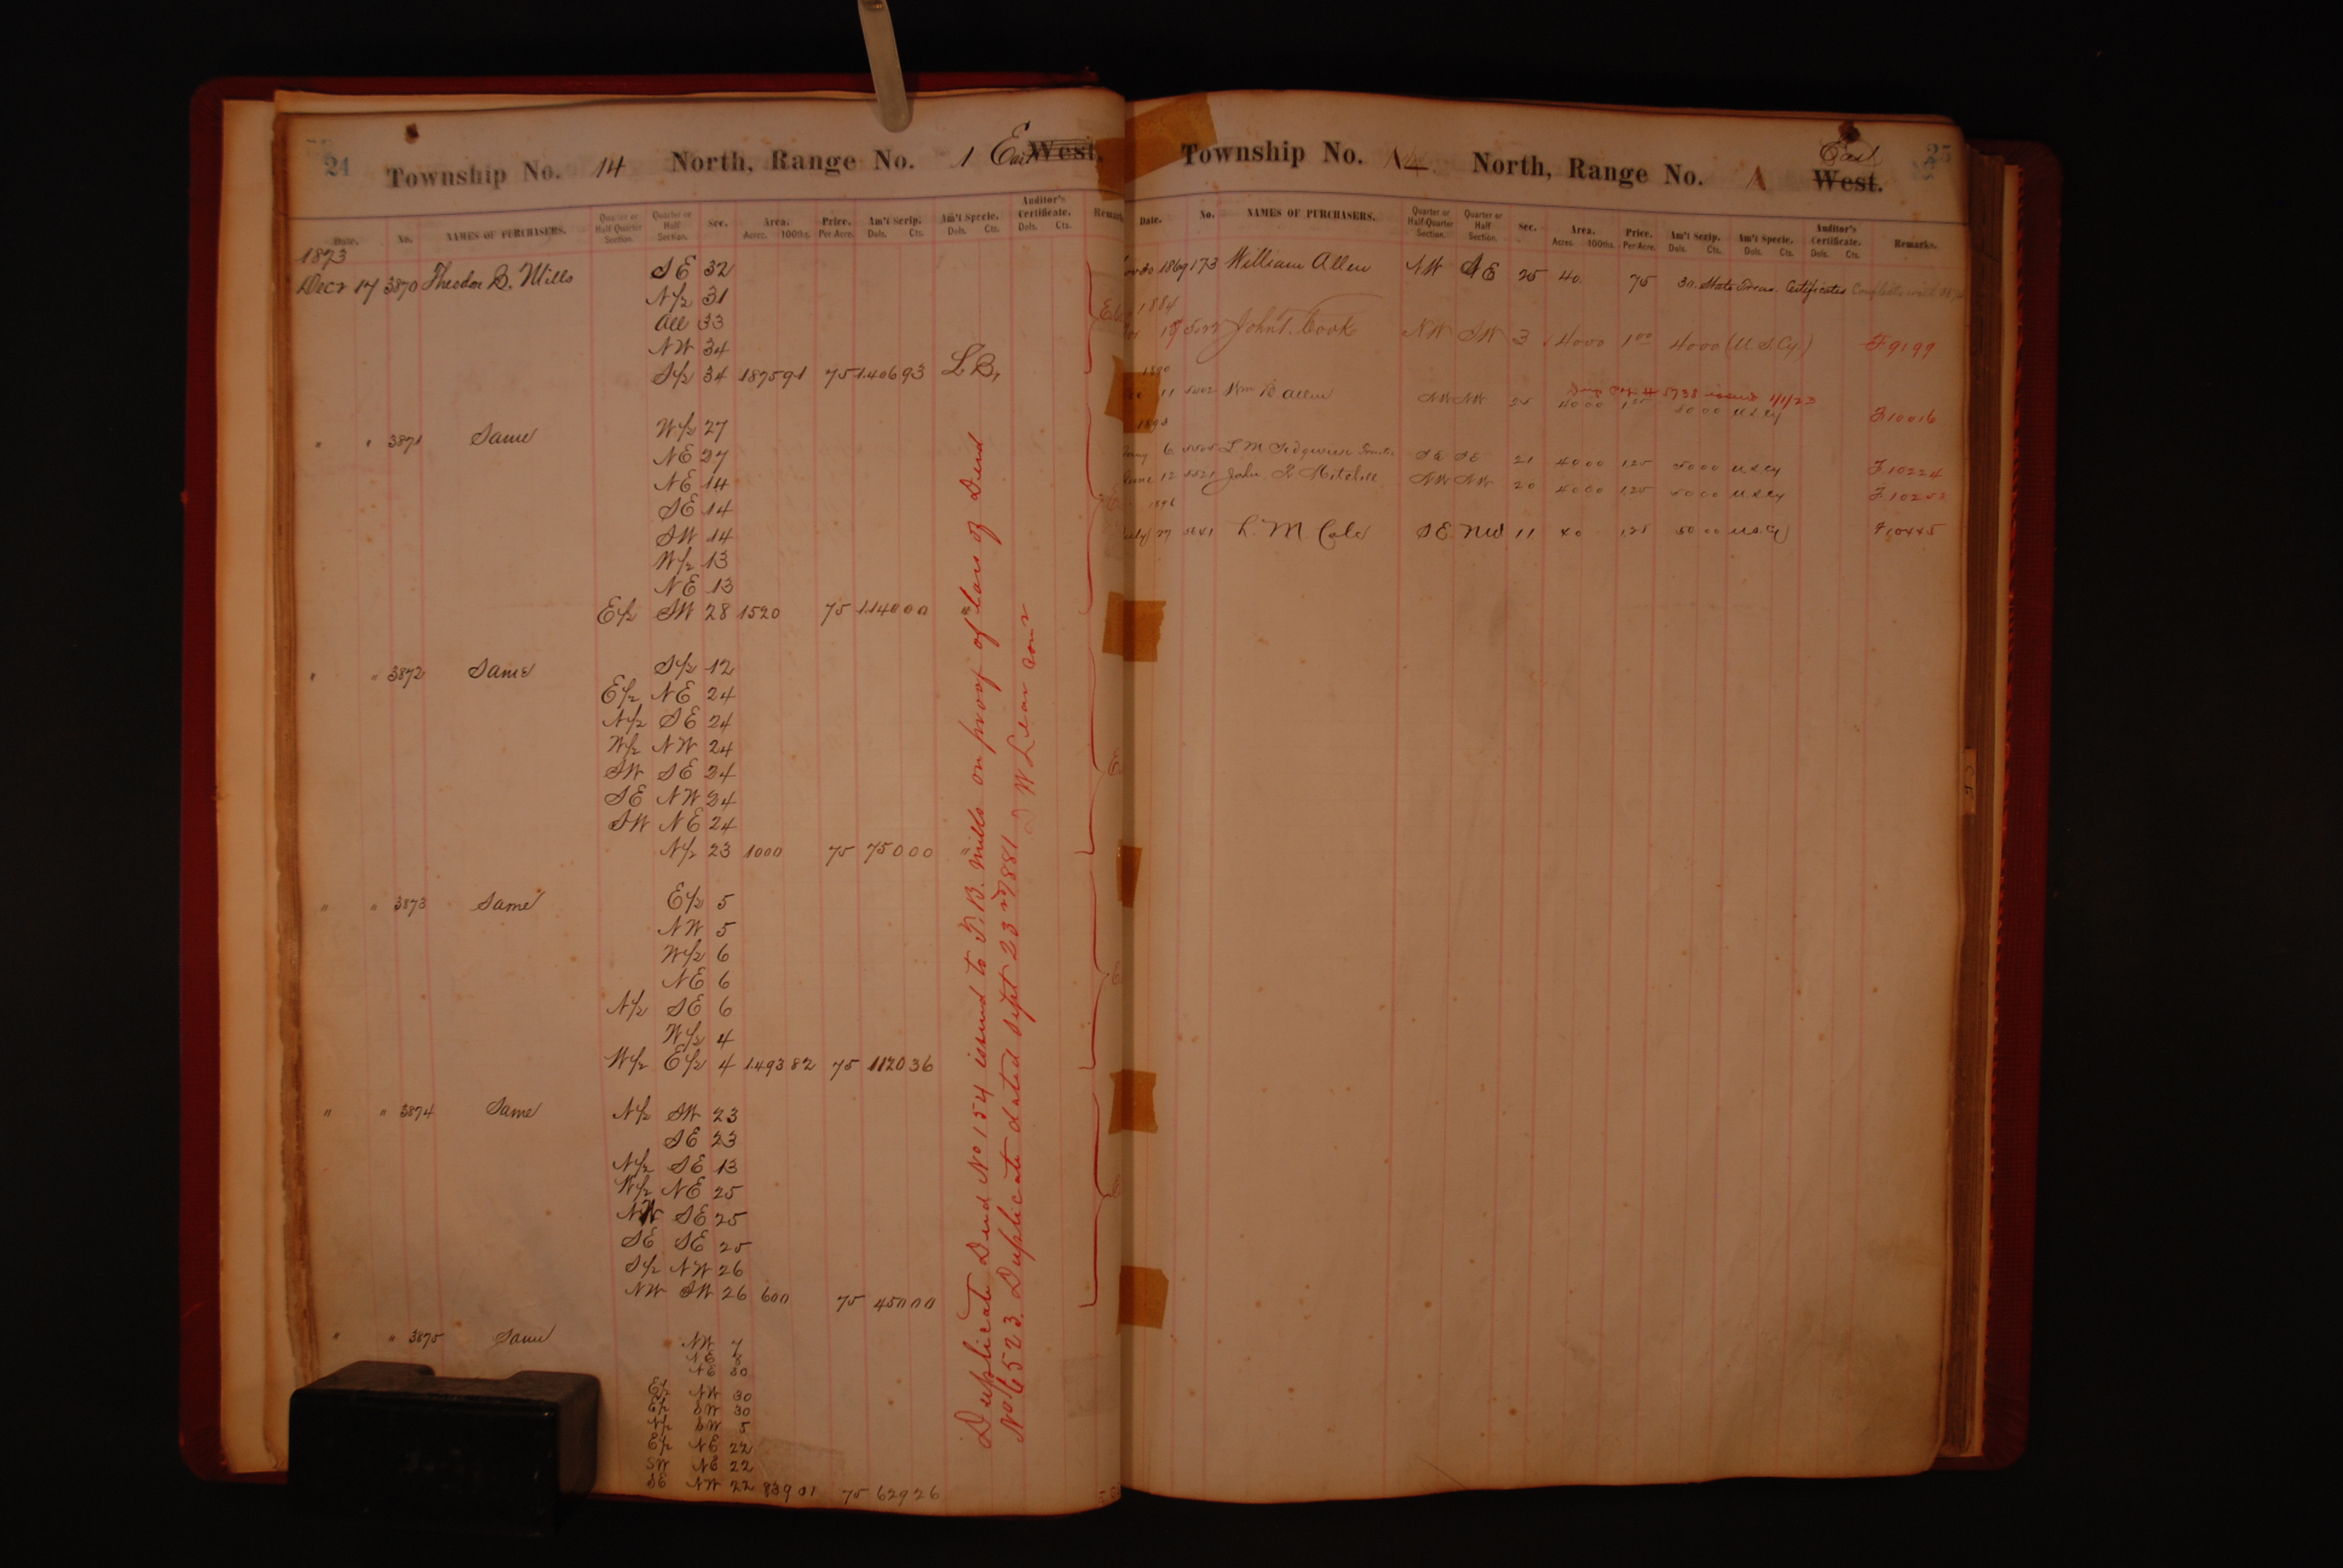 24
Township No. 14 North, Range No. 1 East West.
Date. No. NAMES OF PURCHASERS. Quarter or Half Quarter Section. Quarter or Half Section. Sec. Area. Acres. 100ths. Price. Per Acre. Am't Scrip. Dols. Cts. Am't Specie. Dols. Cts. Auditor's Certificate. Dols. Cts.
1873
Decr 17 3870 Theodore B. Mills SE 32
N/2 31
All 33
NW 34
S/2 34 1875 91 75 1406 93 L B,
" " 3871 Same W/2 27
NE 27
NE 14
SE 14
SW 14
W/2 13
NE 13
E/2 SW 28 1520 75 1140 00 "
" " 3872 Same S/2 12
E/2 NE 24
N/2 SE 24
W/2 NW 24
SW SE 24
SE NW 24
SW NE 24
N/2 23 1000 75 750 00 "
" " 3873 Same E/2 5
NW 5
W/2 6
NE 6
N/2 SE 6
W/2 4
W/2 E/2 4 1493 82 75 1120 36
" " 3874 Same N/2 SW 23
SE 23
N/2 SE 13
W/2 NE 25
NW SE 25
SE SE 25
S/2 NW 26
NW SW 26 600 75 450 00
" " 3875 Same NW 7
NE 8
NE 30
E/2 NW 30
E/2 SW 30
N/2 SW 5
E/2 NE 22
SW NE 22
SE NW 22 839 01 75 629 26
Duplicate Deed No 154 issued to T. B. Mills on proof of loss of Deed
No 6523. Duplicate dated Sept 23rd 1881 D W Lear Comr
25
Township No. North, Range No. East West.
Date. No. NAMES OF PURCHASERS. Quarter or Half-Quarter Section. Quarter or Half Section. Sec. Area. Acres. 100ths. Price. Per Acre. Am't Scrip. Dols. Cts. Am't Specie. Dols. Cts. Auditor's Certificate. Dols. Cts. Remarks.
30 1869 173 William Allen NW NE 25 40. 75 30. State Treas. Certificates
1884
John T. Cook NW SW 3 40 00 1 00 40 00 (U.S.Cy.) F 9199
1890
11 Wm B Allen NW NW 25 40 00 1 25 50 00 U S Cy F. 10016
5738 issued 1/1/23
6 L M SE SE 21 40 00 1 25 50 00 U S Cy F. 10224
June 12 5521 John F. Mitchell NW NW 20 40 00 1 25 50 00 U S Cy
1896
July 27 L. M. Cole SE NW 11 40 1.25 50 00 U.S.Cy F 10445